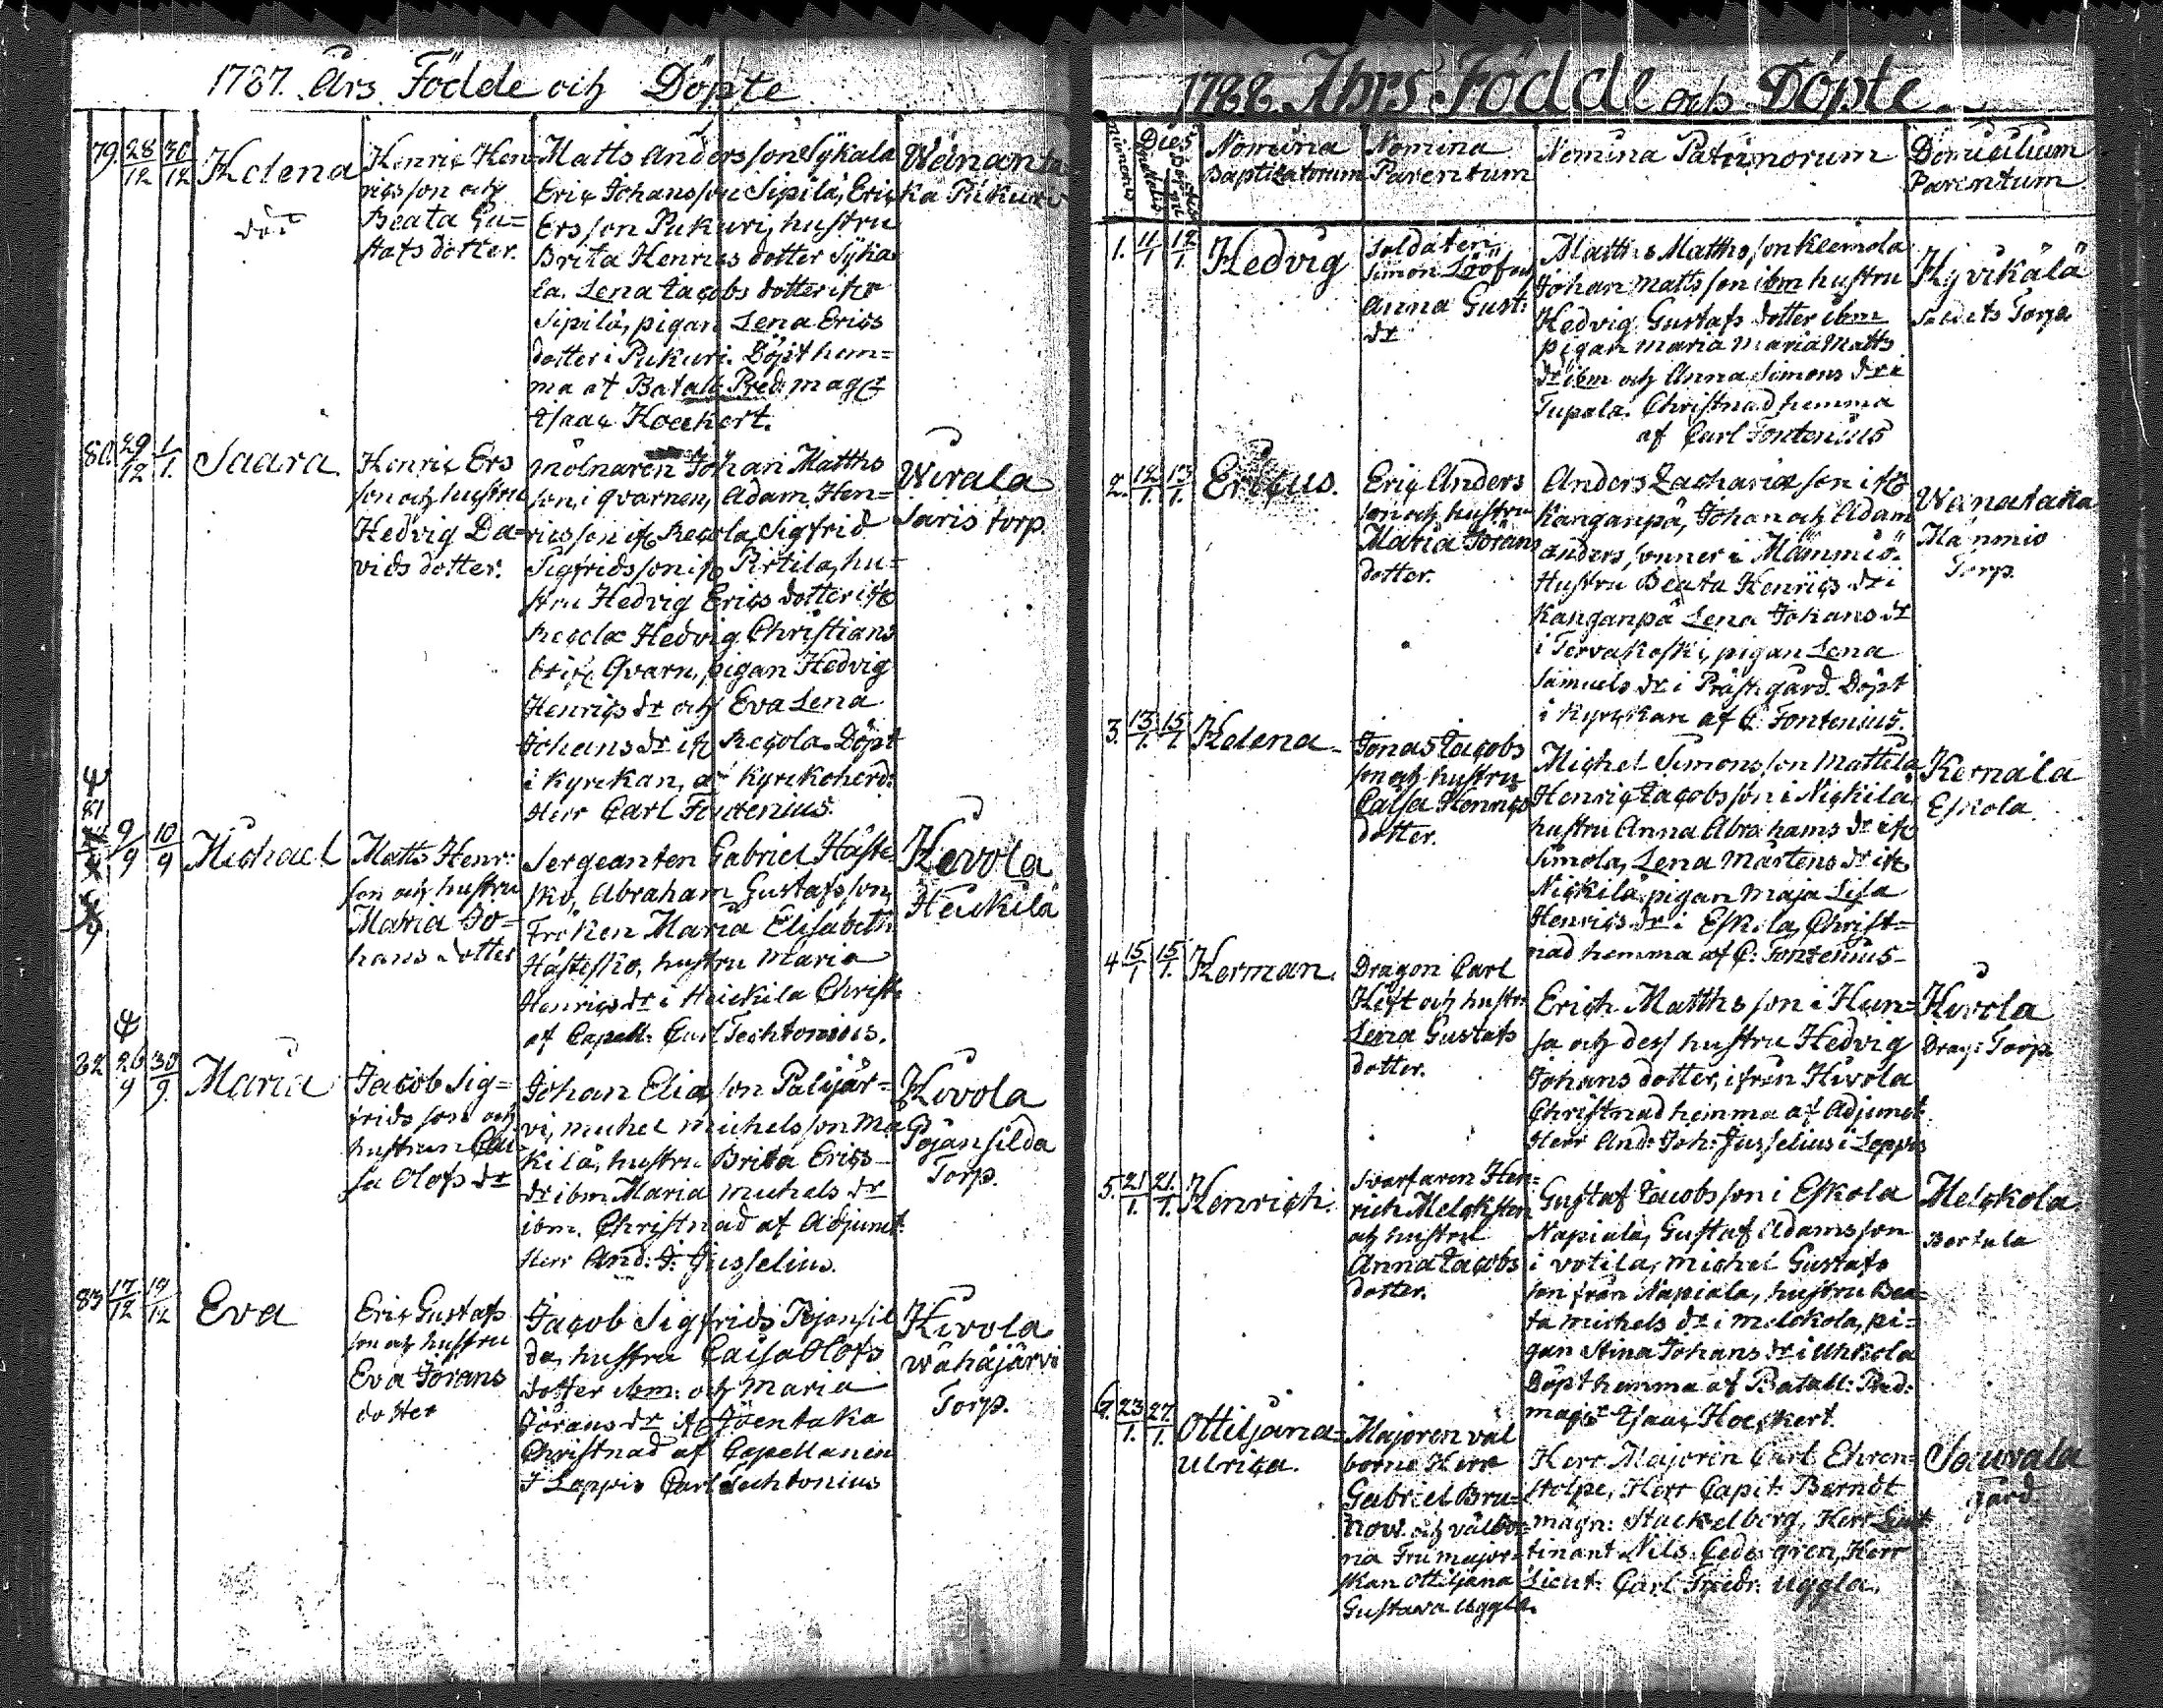 1787. Års Födde och Döpte
79. 28/12 30/12 Helena
död
Henric Hen=
ricsson och
Beata Gu=
stafs dotter.
Matts Anderssone Sykala
Eric Johansson Sipilä, Eric
Ersson Pukuri, hustru
Brita Henrics dotter Syka
la. Lena Jacobs dotter ifr
Sipilä, pigan Lena Erics
dotter i Pukuri. Döpt hem=
ma af Batall: Pred: mag
Isaac Hoeckert.
Weinanta
ka Pukuri
80. 29/12 1/1. Saara.
Henric Ers
son och hustru
Hedvig Da=
vids dotter.
Mölnaren Johan Matths
son i qvarnen, Adam Hen=
ricsson ifr Recola, Sigfrid
Sigfridsson ifr Pirtila, hu=
stru Hedvig Erics dotter ifr
Recola Hedvig Christians
Qvarn, pigan Hedvig
Henrics dr och Eva Lena
Johans dr ifr Recola. Döpt
i kyrckan, af Kyrckoherd:
Herr Carl Fontenius.
Wirala
Saris torp.
81 9/9 10/9 Michael
Matts Henr:
son och hustru
Maria Jo=
hans dotter
Sergeanten Gabriel Häste
sko, Abraham Gustafsson,
Fröken Maria Elisabeth
Hästesko, hustru Maria
Henrics dr i Heickilä Christ:
af Capell: Carl Techtonius.
Hevola
Heickilä
82 26/9 30/9. Maria
Jacob Sig=
fridsson och
hustrun Cai
sa Olofs dr
Johan Eliasson Palijär=
vi, michel michelsson Ma
kilä, hustru Brita Erics
dr ibm Maria michels dr
ibm. Christnad af Adjunct:
Herr And: J: Jusselius.
Hevola
Pojansilda
Torp.
83 17/12 19/12 Eva
Eric Gustafs
son och hustru
Eva Jörans
dotter
Jacob Sigfrids Pojansil
da, hustru Caisa Olofs
dotter ibm: och Maria
Jörans dr ifr Joentaka
Christnad af Capellanen
I Loppis Carl Techtonius
Hevola
Wähäjärvi
Torp.
1788. Åhrs Födde och Döpte.
Dies
Nomina
Baptizatorum
Nomina
Parentum
Nomina Patrinorum
Domicilium
Parentum
1. 11/1 12/1. Hedvig
Soldaten
Simon Lööf och
Anna Gust:
dr
Matths Matthsson Kleimola
Johan Mattsson ibm hustru
Hedvig Gustafs dotter ibm
pigan Maria Maria Matts
dr ibm och Anna Simons dr i
Tupala. Christnad hemma
af Carl Fontenius
Hyvikälä
Soldets Torp.
2. 12/1. 13/1. Ericus.
Eric Anders
son och hustru
Maria Jörans
dotter.
Anders Zachariæ son ifr
Kanganpä, Johan och Adam
Anders, sönner i Mämmiö.
Hustru Beata Henrics dr i
Kanganpä Lena Johans dr
i Tervakoski, pigan Lena
Samuels dr i Prästgård. Döpt
i kyrckan af C: Fontenius.
Wänataka
Mämmiö
Torp.
3. 13/1. 15/1 Helena.
Jonas Jacobs
son och hustru
Caisa Henrics
dotter.
Michel Simonsson Mattila
Henric Jacobsson i Nickila,
hustru Anna Abrahams dr ifr
Simola, Lena Mårtens dr ifr
Nickilä, pigan Maja Lisa
Henrics dr i Eskola, Christ=
nad hemma af C: Fontenius.
Kernala
Eskola
4 15/1 15/1. Herman.
Dragon Carl
Heft och hustru
Lena Gustafs
dotter.
Erich Matthsson i Hun=
sa och dess hustru Hedvig
Johans dotter, ifrån Hevola
Christnad hemma af Adjunct:
Herr And: Joh: Jusselius i Loppis
Hevola
Drag: Torp
5. 21/1. 21./1. Henrich.
Svarfaren Hen=
rich Melcksten
och hustru
Anna Jacobs
dotter.
Gustaf Jacobsson i Eskola
Napiala, Gustaf Adamsson
i Votila, Michel Gustafs
son från Napiala, hustru Bea=
ta michels dr i melckola, pi=
gan Stina Johans dr i Uhkola
Döpt hemma af Batall: Pred:
magr Isaac Hoeckert.
Melckola
Bertula
6. 23/1. 27/1. Ottiljana=
Ulrica.
Majoren väl
borne Herr
Gabriel Bru=
now. och välbor=
na Fru major=
skan Ottiljana
Gustava Uggla.
Herr Majoren Carl Ehren=
stolpe, Herr Capit: Berndt
magn: Stackelberg, Herr Lieut
tenant Nils Cedergren, Herr
Lieut: Carl Fredr: Uggla.
Sauvala
gård